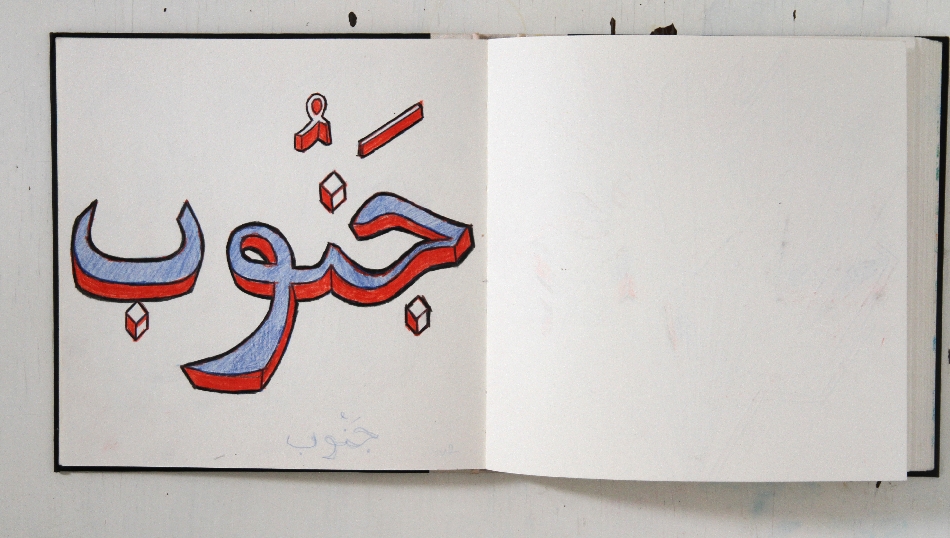 جَنُوب
جَنُوب